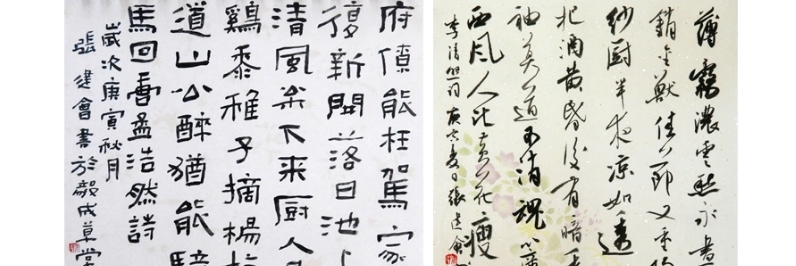 府僚能枉駕家
復新開落日池上
清風枀下来厨人
雞黍稚子摘楊
道山公醉猶能騎
馬回書孟浩然詩
歲次庚寅秋月
張建會書於毅成草堂
薄霧濃雲愁永晝
銷金獸佳節又重
紗厨半夜涼初透
把酒黄昏後有暗香
袖莫道不消魂簾
西風人比黄花瘦
李清照詞庚寅夏日張建會